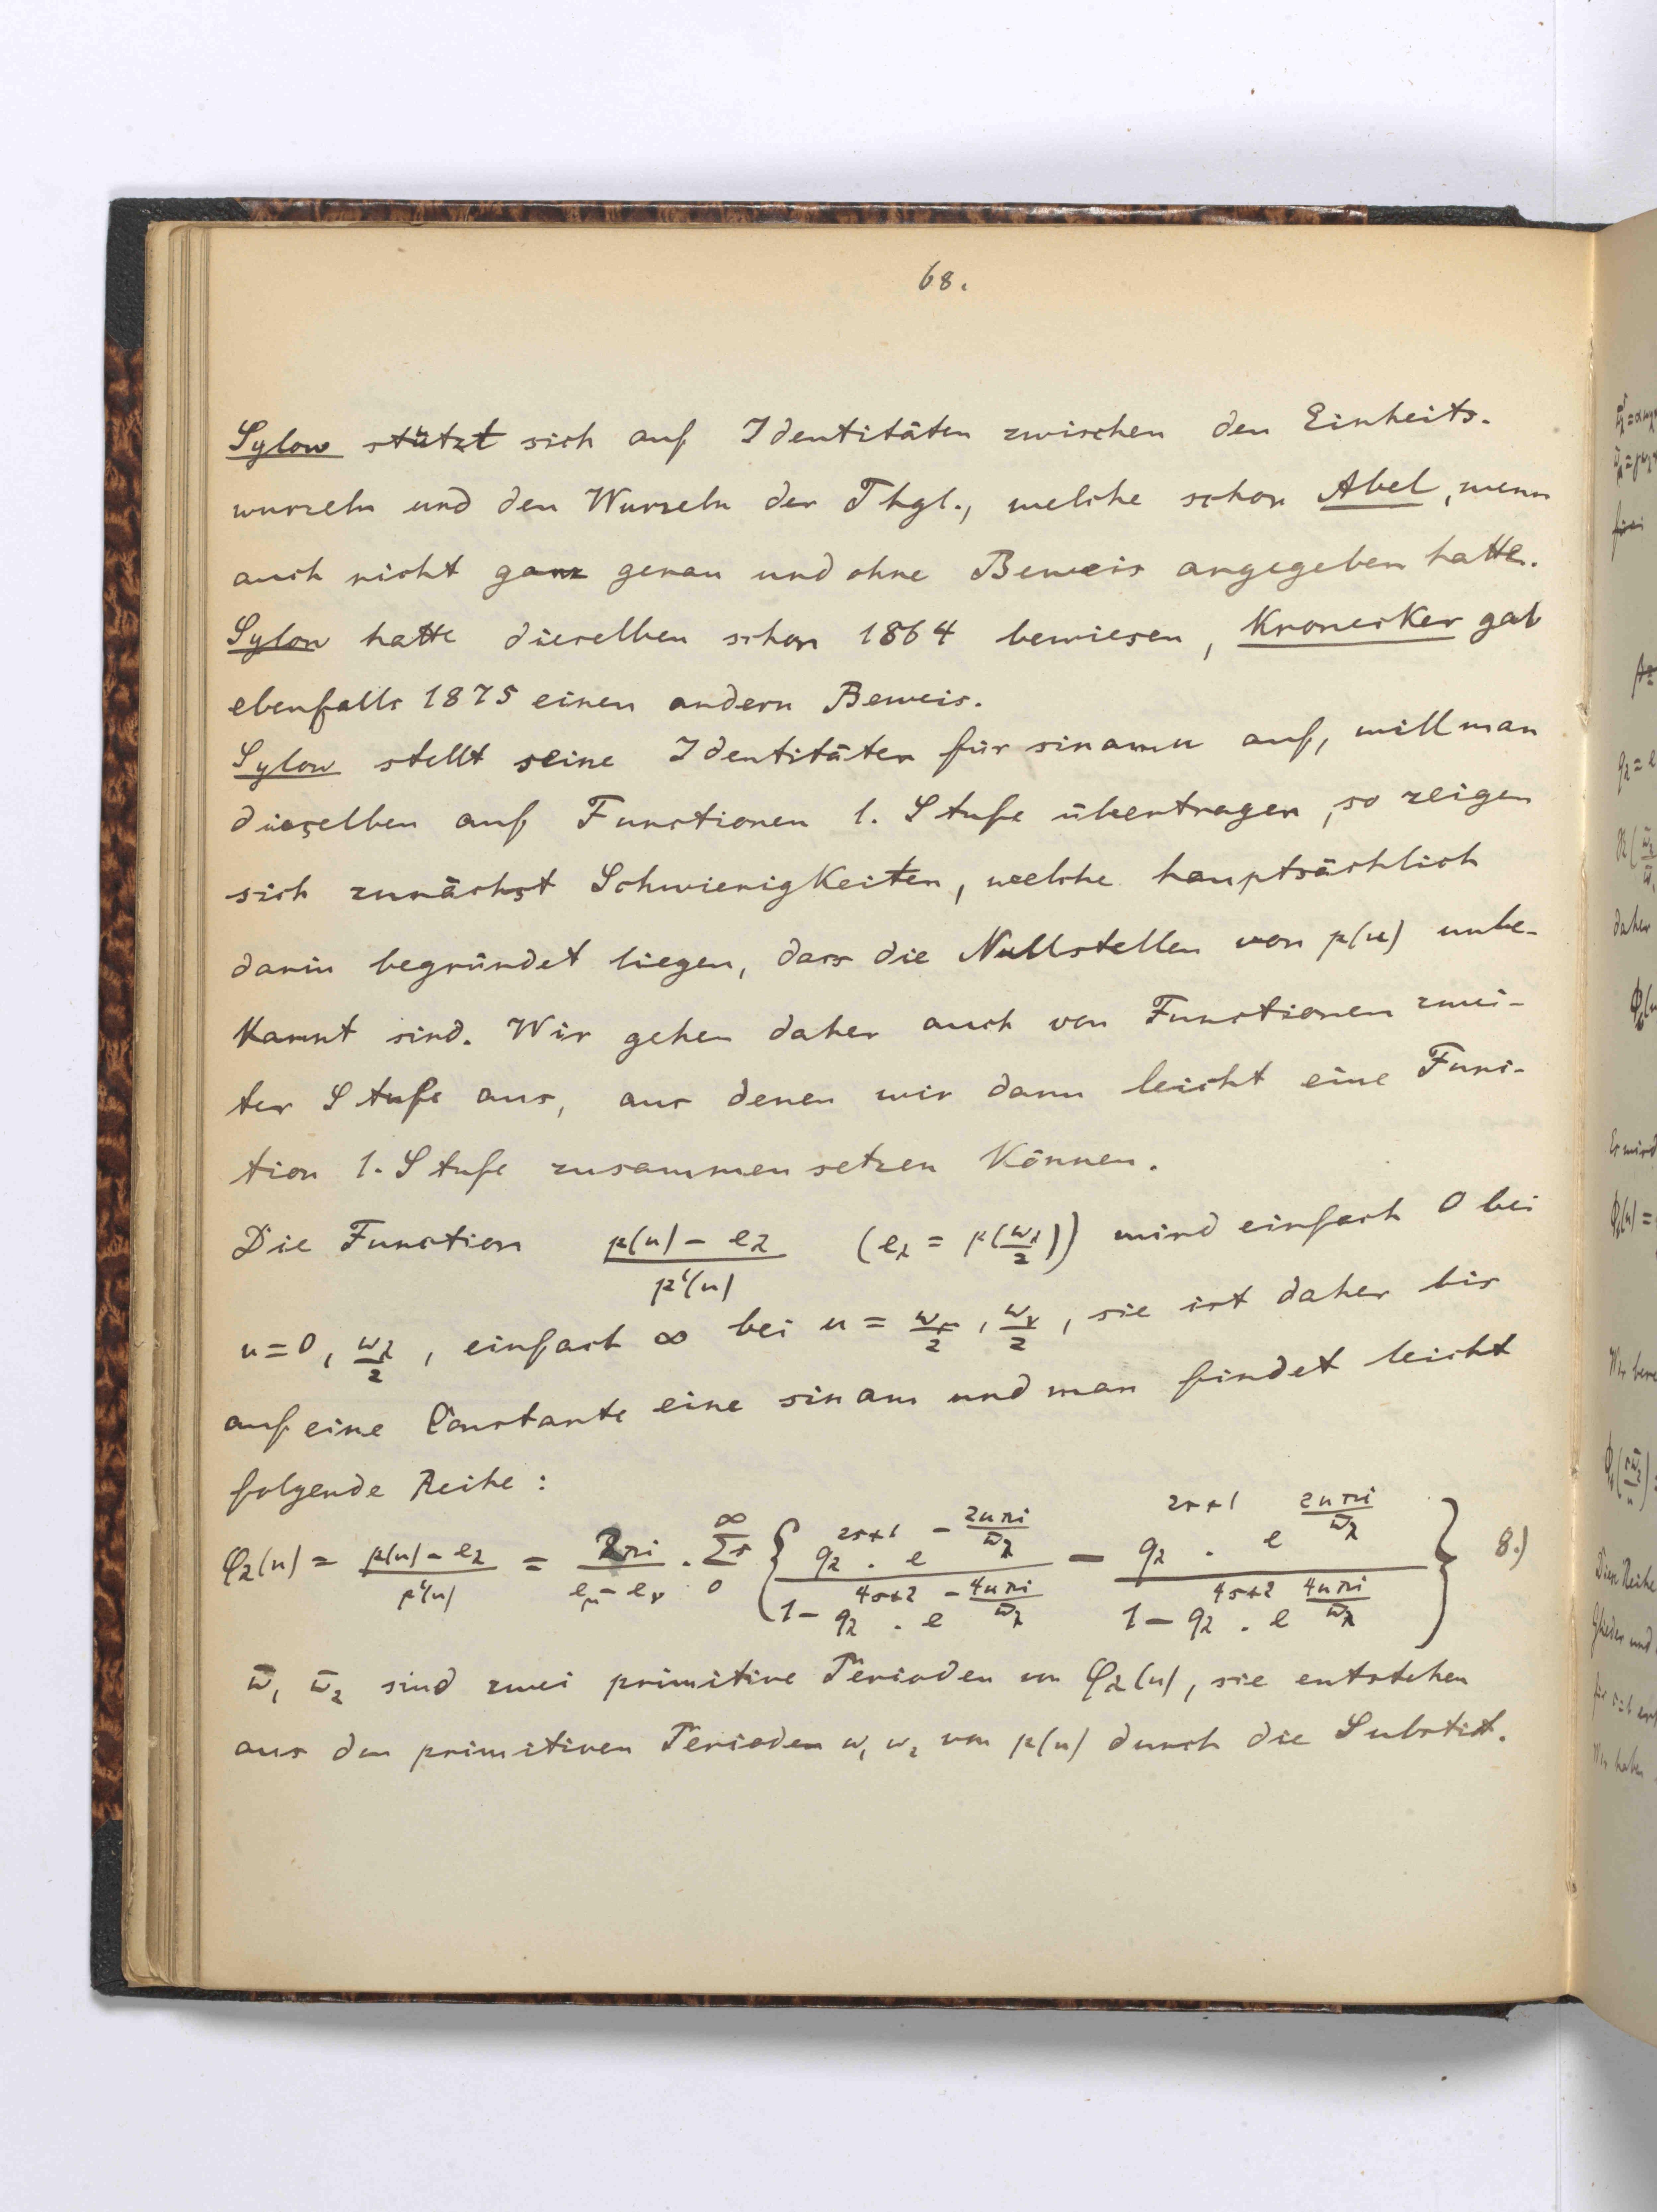 68.
Sylow stützt sich auf Identitäten zwischen den Einheits-
wurzeln und den Wurzeln der Thgl., welche schon Abel, wenn
auch nicht ganz genau und ohne Beweis angegeben hatte.
Sylow hatte dieselben schon 1864 bewiesen, Kronecker gab
ebenfalls 1875 einen andern Beweis.
Sylow stellt seine Identitäten für sinamu auf, will man
dieselben auf Functionen 1. Stufe übertragen, so zeigen
sich zunächst Schwierigkeiten, welche hauptsächlich
darin begründet liegen, dass die Nullstellen von p(u) unbe-
kannt sind. Wir gehen daher auch von Functionen zwei-
ter Stufe aus, aus denen wir dann leicht eine Func-
tion 1. Stufe zusammensetzen können.
Die Function (p(u) - e_λ)/(p'(u)) (e_λ = p(ω_λ/2)) wird einfach 0 bei
u = 0, ω_λ/2, einfach ∞ bei u = ω_μ/2, ω_ν/2, sie ist daher bis
auf eine Constante eine sinam und man findet leicht
folgende Reihe:
φ_λ(u) = (p(u) - e_λ)/(p'(u)) = 2πi/(e_μ - e_ν) · Σ_r_0^∞ { (q_λ^{2r+1} · e^{-2uπi/ω̄_λ})/(1 - q_λ^{4r+2} · e^{-4uπi/ω̄_λ}) - (q_λ^{2r+1} · e^{2uπi/ω̄_λ})/(1 - q_λ^{4r+2} · e^{4uπi/ω̄_λ}) } 8.)
ω̄₁ ω̄₂ sind zwei primitive Perioden von φ_λ(u), sie entstehen
aus den primitiven Perioden ω₁ ω₂ von p(u) durch die Substit.